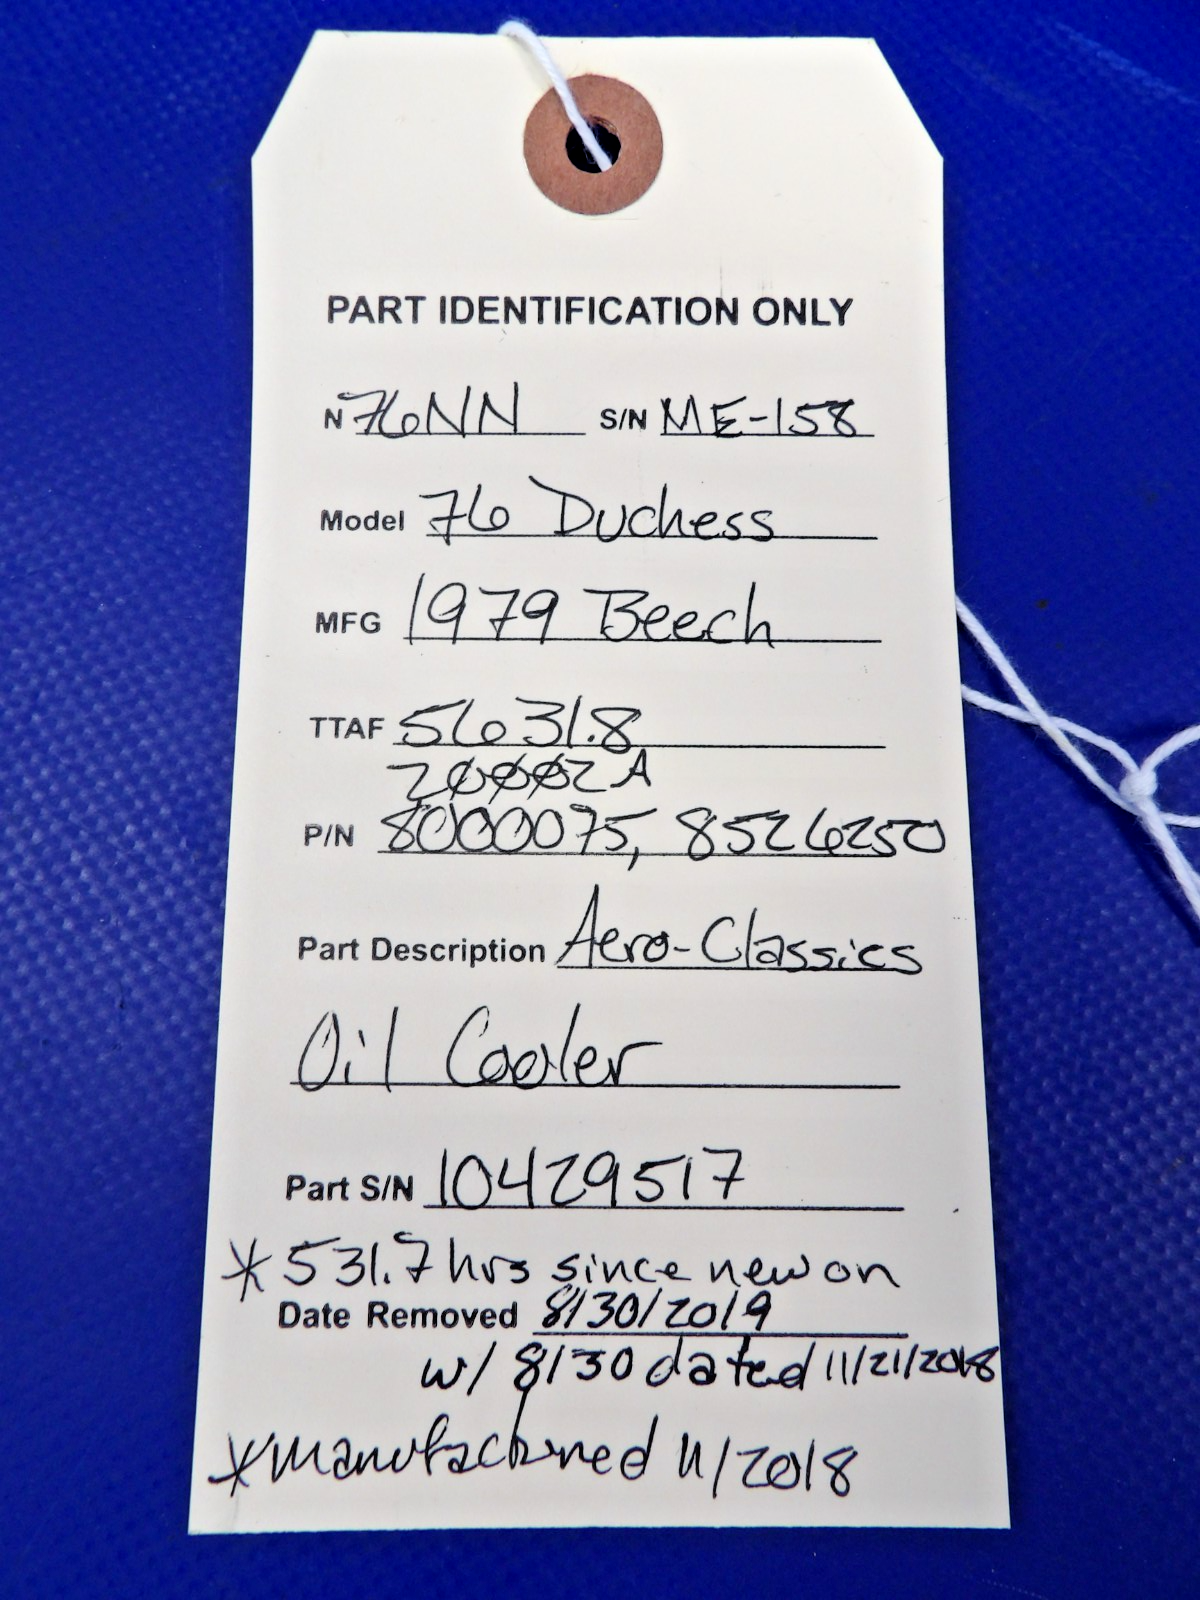 PART IDENTIFICATION ONLY
N 76NN S/N ME-158
Model 76 Duchess
MFG 1979 Beech
TTAF 5631.8
20002A
P/N 8000075, 8526250
Part Description Aero-Classics
Oil Cooler
Part S/N 10429517
* 531.7 hrs since new on
Date Removed 8/30/2019
w/ 8130 dated 11/21/2018
* manufactured 11/2018